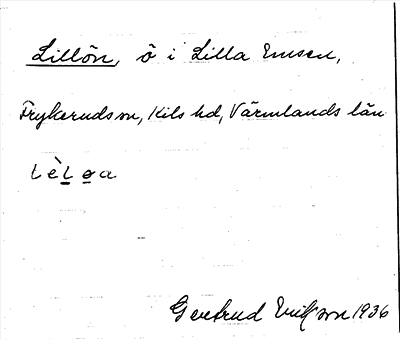 Lillön, ö i Lilla Emsen,
Frykerudssn, Kils hd, Värmlands län
Lèl øa
Gertrud Eriksson 1936